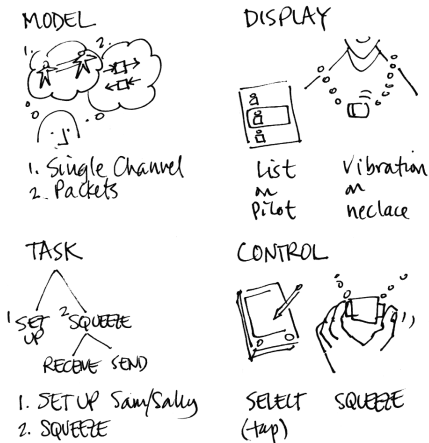 MODEL
1.
2.
1. Single Channel
2. Packets
DISPLAY
List
on
Pilot
Vibration
on
neclace
TASK
1 SET
UP
2 SQUEEZE
RECEIVE SEND
1. SET UP Sam/Sally
2. SQUEEZE
CONTROL
SELECT
(tap)
SQUEEZE